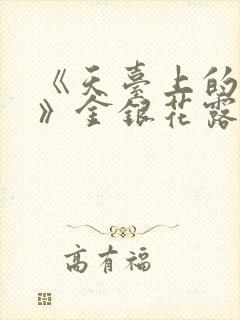 《天臺上的
》金銀花露
高有福